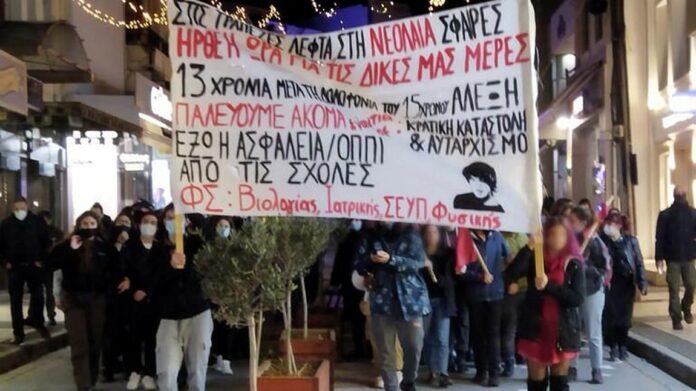 ΣΤΙΣ ΤΡΑΠΕΖΕΣ ΛΕΦΤΑ ΣΤΗ ΝΕΟΛΑΙΑ ΣΦΑΙΡΕΣ
ΗΡΘΕ Η ΩΡΑ ΓΙΑ ΤΙΣ ΔΙΚΕΣ ΜΑΣ ΜΕΡΕΣ
13 ΧΡΟΝΙΑ ΜΕΤΑ ΤΗ ΔΟΛΟΦΟΝΙΑ ΤΟΥ 15ΧΡΟΝΟΥ ΑΛΕΞΗ
ΠΑΛΕΥΟΥΜΕ ΑΚΟΜΑ ΕΝΑΝΤΙΑ ΣΕ: ΚΡΑΤΙΚΗ ΚΑΤΑΣΤΟΛΗ
& ΑΥΤΑΡΧΙΣΜΟ
ΕΞΩ Η ΑΣΦΑΛΕΙΑ/ΟΠΠΙ
ΑΠΟ ΤΙΣ ΣΧΟΛΕΣ
ΦΣ: Βιολογίας, Ιατρικής, ΣΕΥΠ Φυσικής